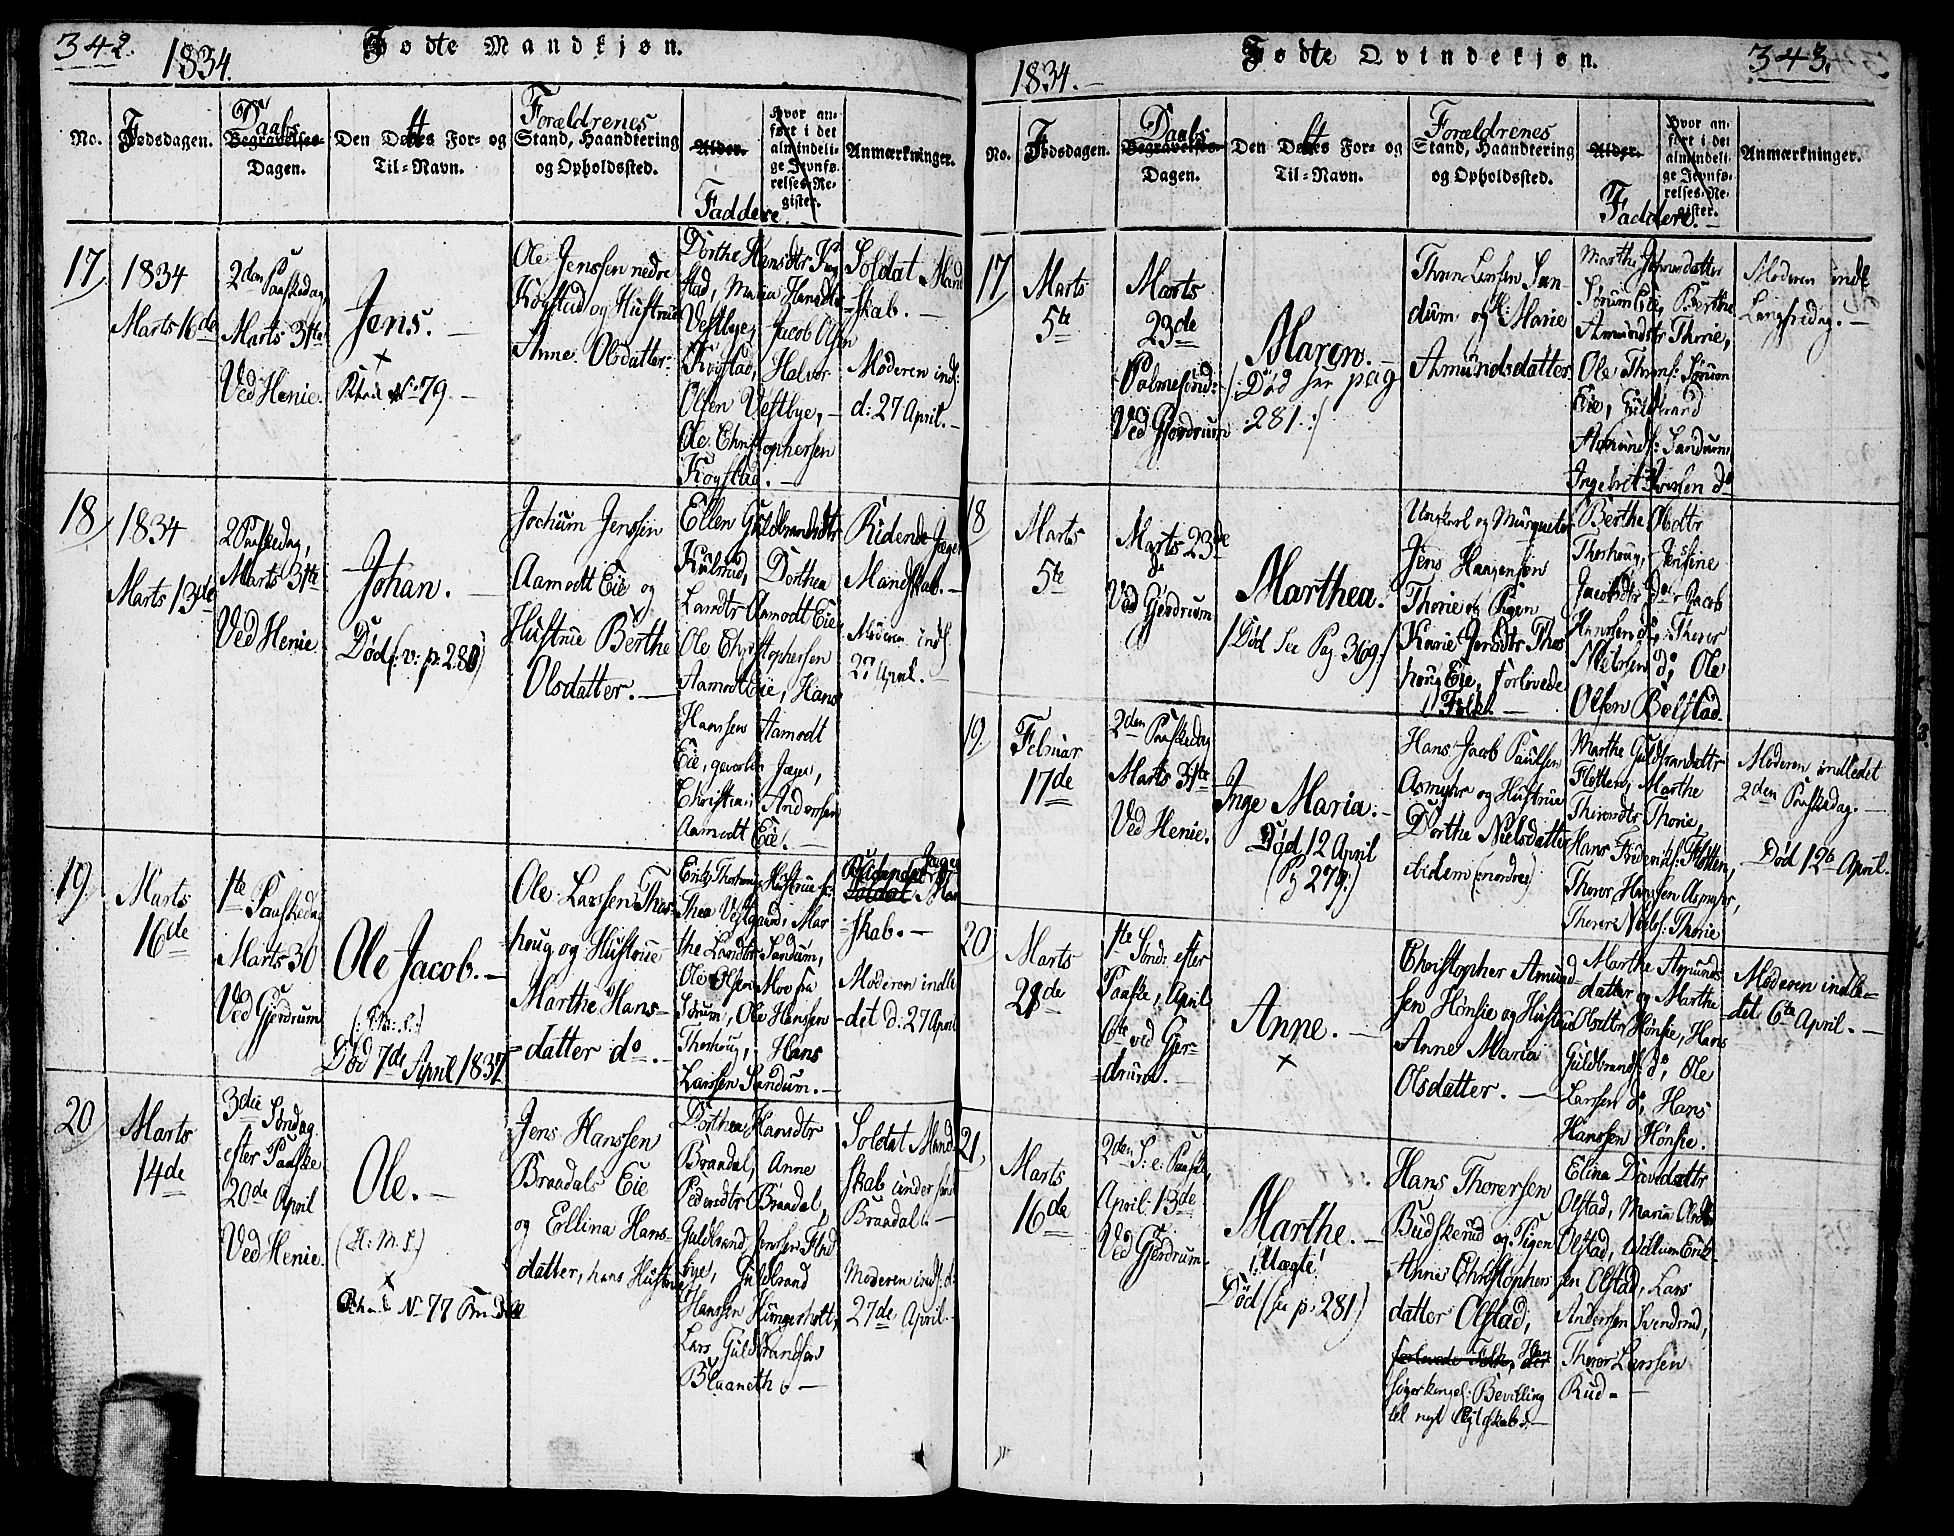 342.
1834.
Fødte Mandkjøn.
No.
Fødsdagen.
Daabs
Begravelses-
Dagen.
Den Døbtes For- og
Til-Navn.
Forældrenes
Stand, Haandtering
og Opholdssted.
Alder.
Faddere.
Hvor an-
ført i det
almindeli-
ge Jevnfø-
relses-Re-
gister.
Anmærkninger.
17
1834
Marts 16de
2den Paaskedag,
Marts 31te
Ved Henie.
Jens.
+
No 79.
Ole Jenssen nedre
Kogstad og Hustrue
Anne Olsdatter.
Dorthe Hansdtr
stad, Maria Hansdtr
Vestbye, Jacob Olsen
Kogstad, Halvor
Olsen Vestbye,
Ole Christophersen
Kogstad.
Soldat Mand
skab.
Moderen indl:
d: 27 April.
18
1834
Marts 13de
2 Paaskedag,
Marts 31te
Ved Henie.
Johan.
Død (v: p: 280)
Jochum Jenssen
Aamodt Eie og
Hustrue Berthe
Olsdatter.
Ellen Guldbrandsdtr
Kulsrud, Dorthea
Larsdtr Aamodt Eie
Ole Christophersen
Aamodt Eie, Hans
Hanssen Aamodt
Eie, Jæger,
Christian Anderssen
Aamodt Eie.
Ridende Jæger
Mandskab.
Moderen indl
27 April.
19
Marts
16de
1te Paaskedag
Marts 30
Ved Gjerdrum
Ole Jacob.
Død 7de April 1837
Ole Larssen Thos-
houg og Hustrue
Marthe Hans-
datter do.
Erik Thoshougs Hustrue
Thea Vestgaard, Mar
the Larsdtr Sandum,
Ole Olsen Moe fra
Sørum, Ole Hanssen
Thoshoug, Hans
Larssen Sandum.
Ridende Jæger
Soldat Man
skab.
Moderen indle
det d: 27 April
20
Marts
14de
3die Søndag
efter Paaske
20de April
Ved Henie.
Ole.
(H: M: S:)
+
No 77
Jens Hanssen
Brandals Eie
og Ellina Hans-
datter, hans Hustrue
Dorthea Hansdtr
Brandal, Anne
Pedersdtr Brandal,
Guldbrand Jenssen
bye, Guldbrand
Hanssen Hungerholt,
Lars Guldbrandsen
Soldat Mand
skab under
Brandal.
Moderen indl: d:
27de April.
343.
1834.
Fødte Qvindekjøn.
No.
Fødsdagen.
Daabs
Begravelses-
Dagen.
Den Døbtes For- og
Til-Navn.
Forældrenes
Stand, Haandtering
og Opholdssted.
Alder.
Faddere.
Hvor an-
ført i det
almindeli-
ge Jevnfø-
relses-Re-
gister.
Anmærkninger.
17
Marts
5te
Marts
23de
Palmesønd:
Ved Gjerdrum
Maren.
(:Død see pag
281.:)
San
dum og H: Marie
Amundsdatter
Marthe
Sørum Eie, Berthe
Amundsdtr Thorie,
Ole Sørum
Eie, Guldbrand
Amunds: Sandum,
Ingebrit Iversen do
Moderen indl
Langfredag.
18
Marts
5te
Marts 23de
Ved Gjerdrum
Marthea.
/Død See Pag 369:/
Ungkarl og Musqueter
Jens Haagensen
Thorie og Pigen
Karie Jensdtr Thos
houg Eie, forlovede
Folk.
Berthe Olsdtr
Thoshoug, Jensine
Jacobsdtr do, Jacob
Hanssen do, Thorer
Nielsen do, Ole
Olsen Bølstad.
19
Februar
17de
2den Paaskedag
Marts 31te
Ved Henie.
Inge Maria.
Død 12 April
(Pg 279.)
Hans Jacob Paulsen
Asmyhr og Hustrue
Dorthe Nielsdatter
ibidem (nordre)
Marthe Guldbrandsdtr
Flotten, Marthe
Thorersdtr Thorie,
Hans Frideriks: Flotten,
Thoror Hanssen Asmyhr,
Thorer Niels: Thorie
Moderen indledet
2den Paaskedag.
Død 12te April.
20
Marts
21de
1te Sønd: efter
Paaske, April
6te ved Gjer-
drum.
Anne.
+
Christopher Amund-
sen Hønsie og Hustrue
Anne Maria
Olsdatter.
Marthe Asmunds
datter og Marthe
Olsdtr Hønsie, Hans
Guldbrands: do, Ole
Larssen do, Hans
Hanssen Hønsie.
Moderen indle-
det 6te April.
21,
Marts
16de
2den S: e: Paaske,
April 13de
Ved Gjerdrum.
Marthe.
/:Uægte:/
Død (see p: 281)
Hans Thorersen
Budskerud og Pigen
Anne Christophers
datter Olstad,
forlovede Folk, Han
søger kongel: Bevilling
til nyt Ægteskab
Elina Davidsdatter
Olstad, Maria Olsdtr
Olstad, Willum Erik-
sen Olstad, Lars
Anderssen Svendsrud,
Thoror Larssen
Rud.